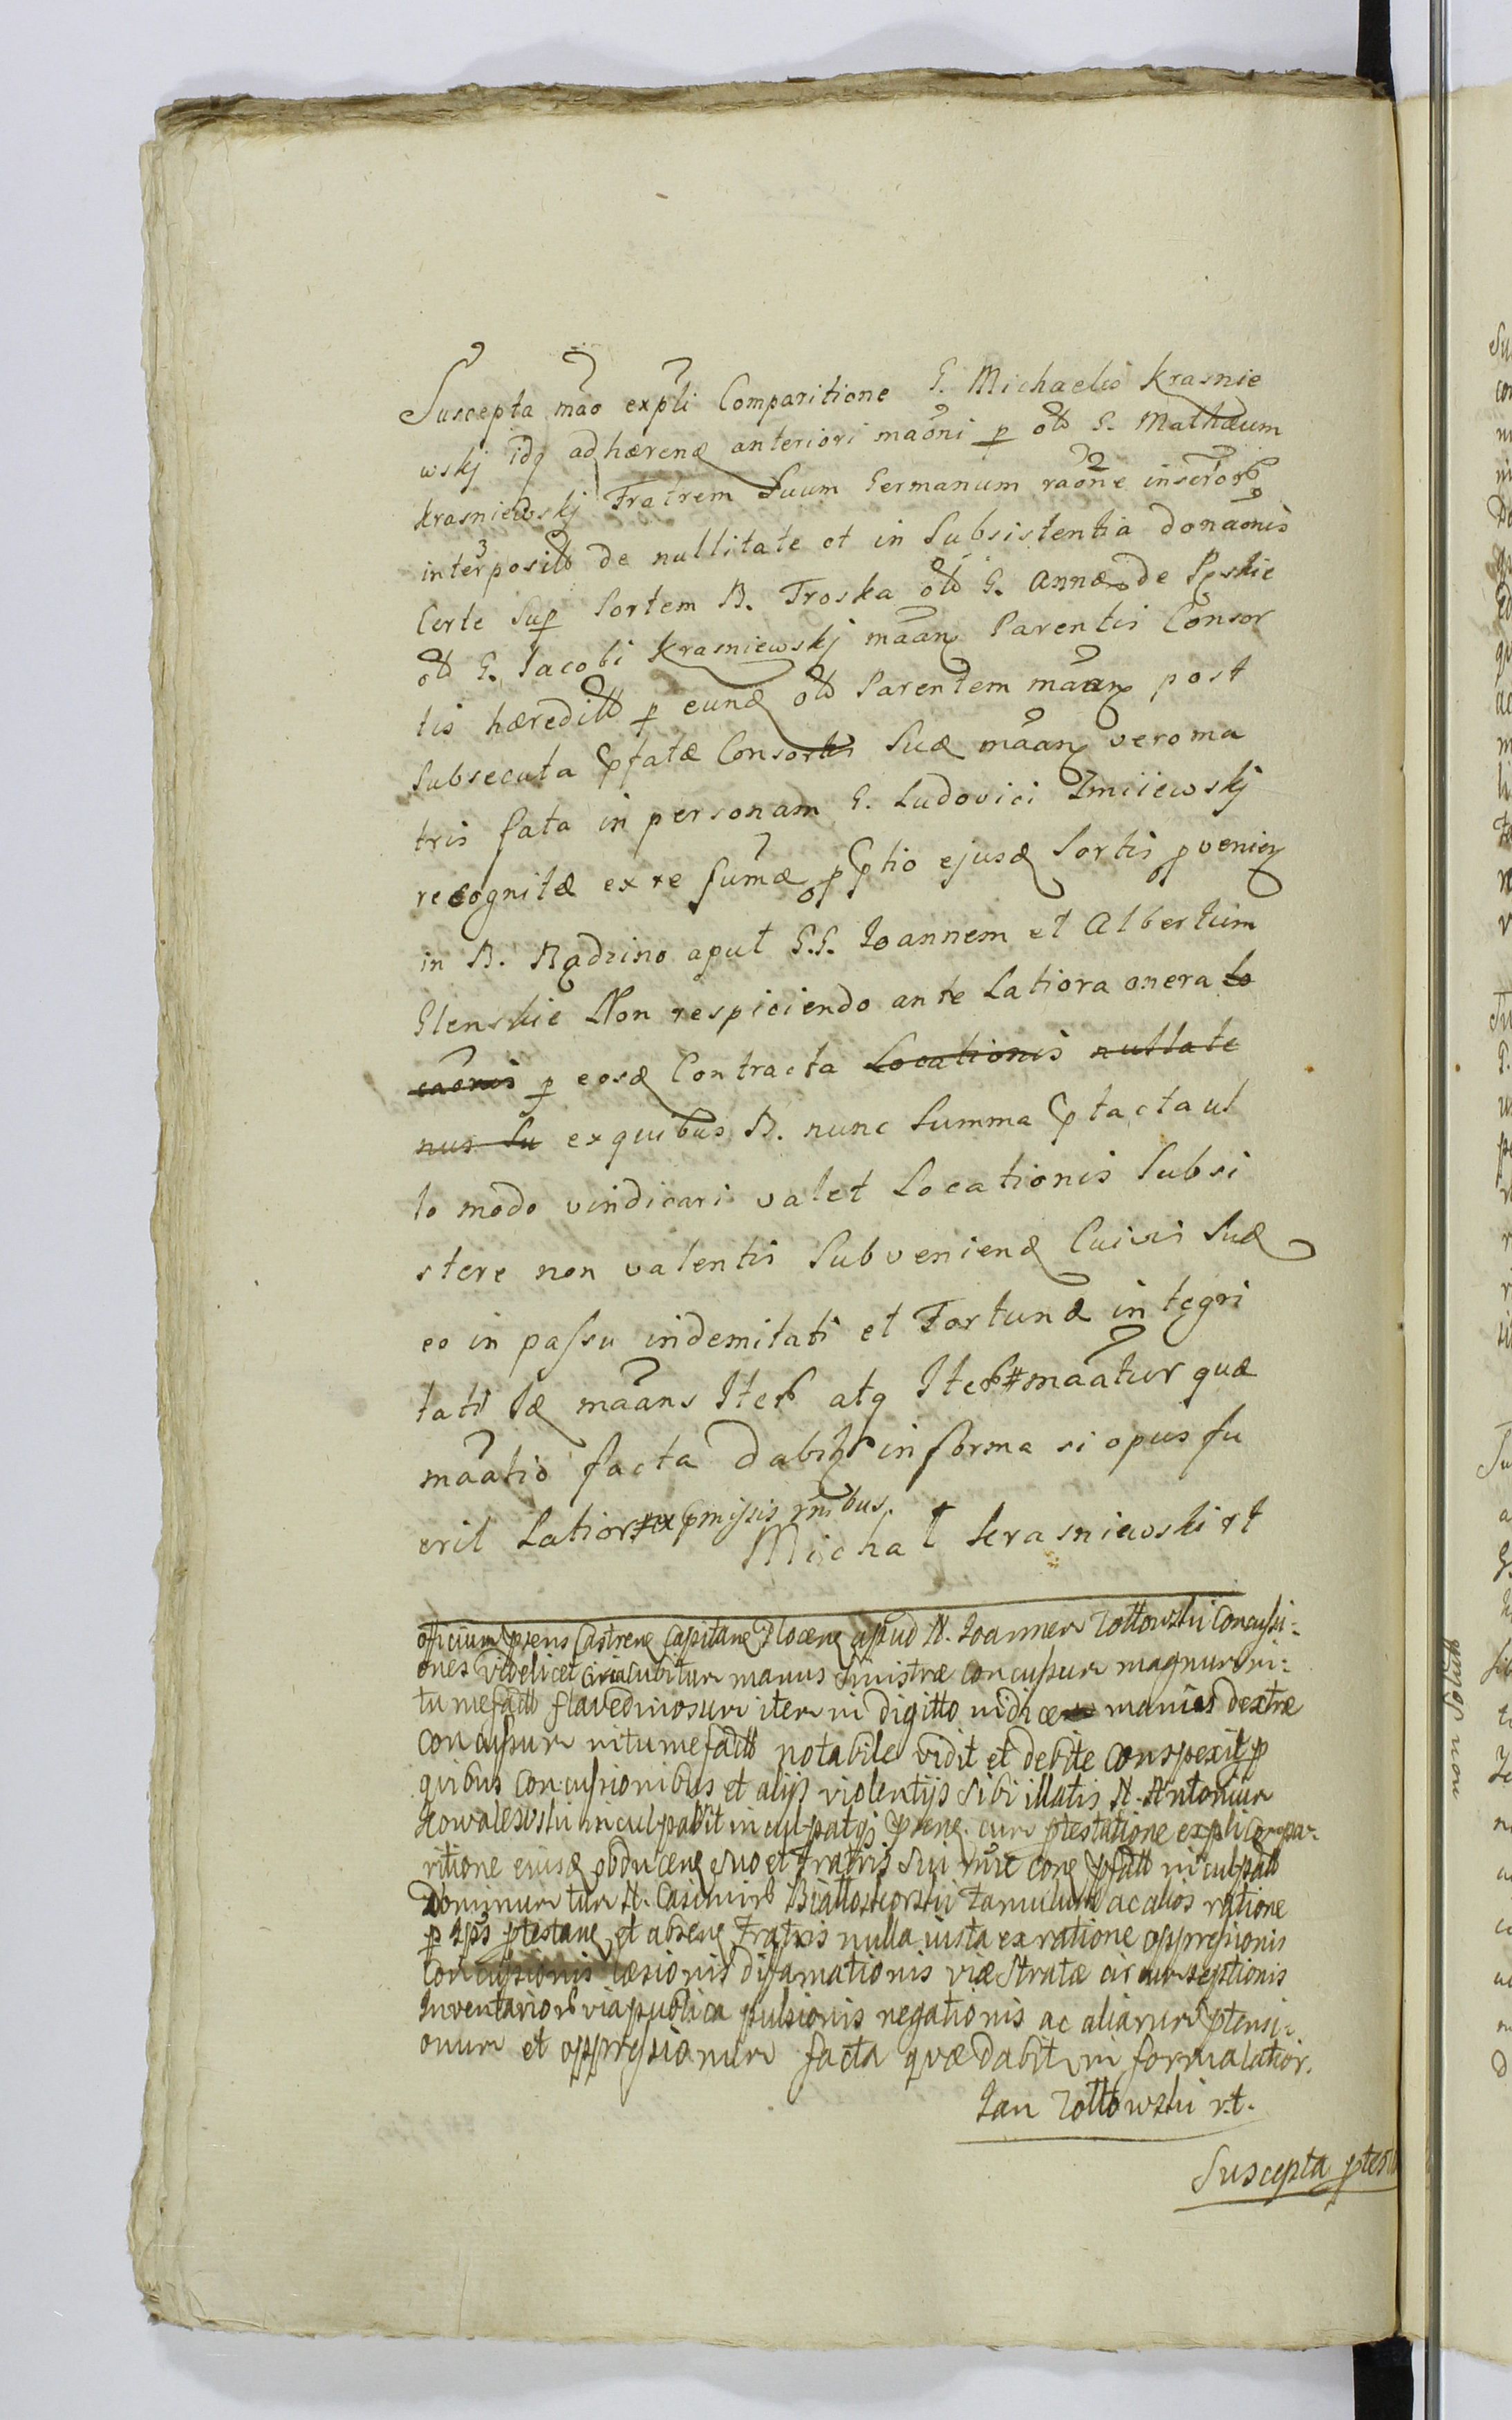 Suscepta mao expli Comparitione G. Michaelis Krasnie
wskj idq adhærend anteriori maoni p old G. Mathæum
Krasniewskj Fratrem Suum Germanum raone
interposild de nullitate et in Subsistentia donaonis
Certe Sup Sortem B. Troska old G. Annæ de
old G. Jacobi Krasniewskj maan Parentis Consor
tis p eund old Parentem maan post
Subsecuta pfatæ Consortis Suæ maan vero ma
tris fata in personam G. Ludovici Zmiiewskj
recognitæ ex re sumæ p ptio ejusd Sortis pvenien
in B. Radzino aput G.G. Joannem et Albertum
Glenskie Non respiciendo ante Latiora onera Lo
caonis p eosd Contracta Locationis nullate
nus Su ex quibus B. nunc Summa ptacta ul
lo modo vindicari valet Locationis Subsi
stere non valentis Subveniend Cuivis Suæ
eo in passu indemitati et Fortunæ integri
tati Id maans Iter atq Iter maatur quæ
maatio facta Dabit in forma si opus fu
erit Latior ex pmissis rnibus.
Michał Krasniewski rt
officium prens Castrens Capitane Plocens apud N. Joannem Zottowski Concussi-
ones Videlicet circa Cubitum manus Sinistræ concussum magnum in-
tumefactt flavedinosum item in digitto indice manus dextræ
concussum intumefactt notabile vidit et debite conspexit p
quibus concussionibus et alijs violentijs Sibi illatis N. Antonium
Kowalewski inculpavit inculpatqj prens cum ptestatione expli Compa-
ritione eiusd obducens suo et Fratris Sui nõie cone pfatt inculpatt
Dominum tum N. Casimir Biattoskorski Famulum ac alios ratione
p ips ptestans et absens Fratris nulla iusta ex ratione oppressionis
Concussionis læsionis diffamationis viæ Stratæ circumseptionis
Inventarior via publica pulsionis negationis ac aliarum ptensi-
onum et oppressionum facta quæ dabit in forma latior.
Jan Zottowski r.t.
Suscepta ptest